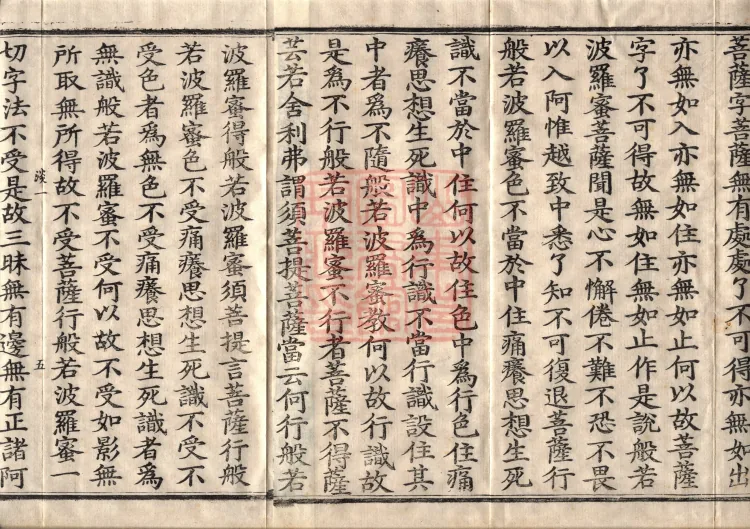 菩薩字菩薩無有處處了不可得亦無如出
亦無如入亦無如住亦無如止何以故菩薩
字了不可得故無如住無如止作是說般若
波羅蜜菩薩聞是心不懈倦不難不恐不畏
以入阿惟越致中悉了知不可復退菩薩行
般若波羅蜜色不當於中住痛癢思想生死
識不當於中住何以故住色中為行色住痛
癢思想生死識中為行識不當行識設住其
中者為不隨般若波羅蜜教何以故行識故
是為不行般若波羅蜜不行者菩薩不得薩
芸若舍利弗謂須菩提菩薩當云何行般若
波羅蜜得般若波羅蜜須菩提言菩薩行般
若波羅蜜色不受痛癢思想生死識不受不
受色者為無色不受痛癢思想生死識者為
無識般若波羅蜜不受何以故不受如影無
所取無所得故不受菩薩行般若波羅蜜一
五
切字法不受是故三昧無有邊無有正諸阿